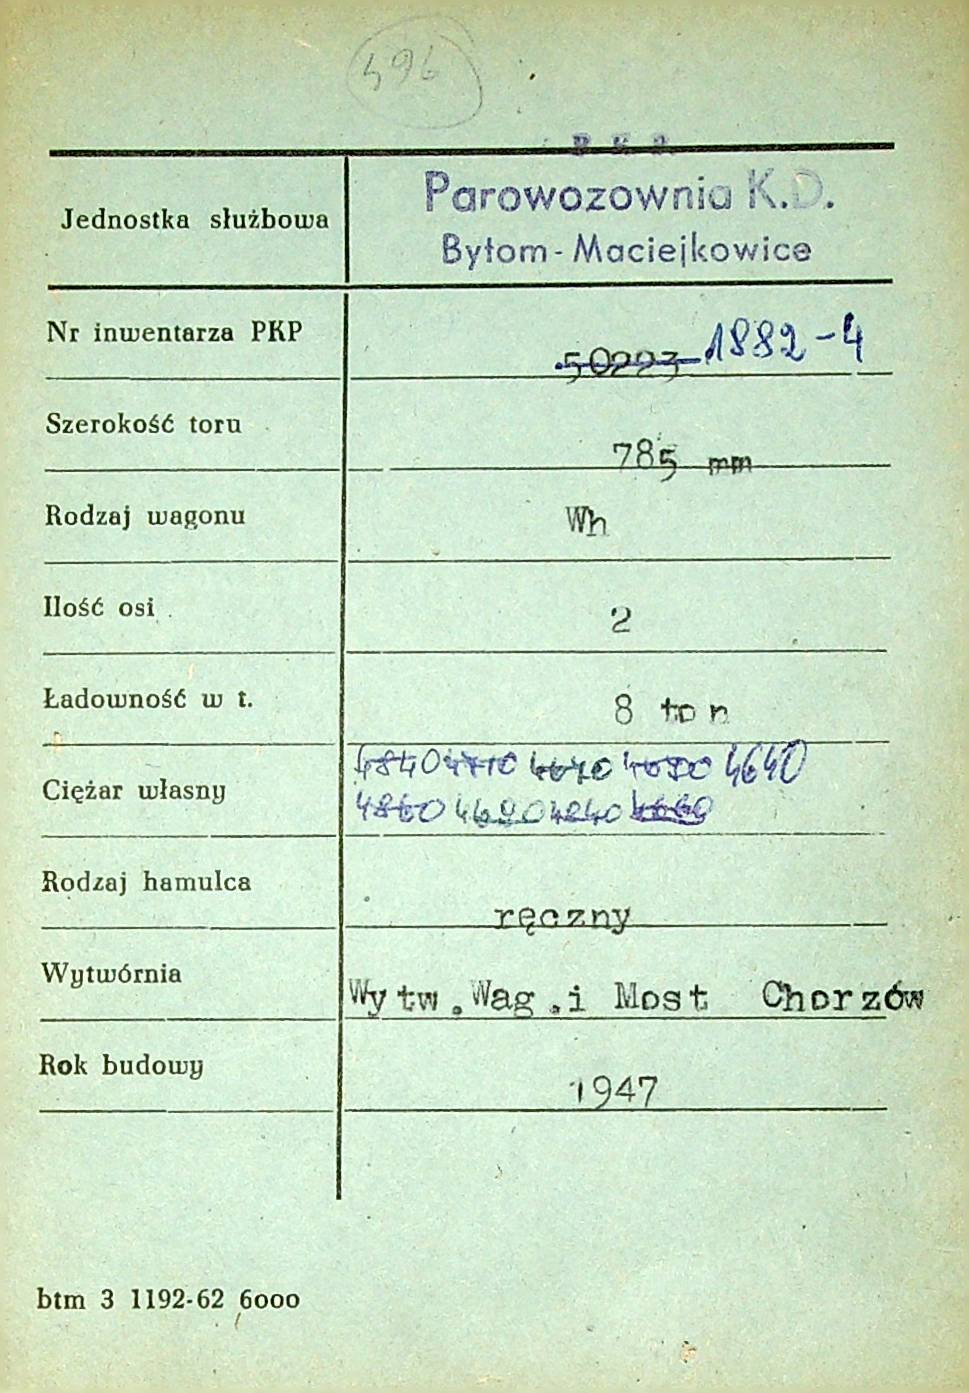 496
Jednostka służbowa
Parowozownia K.D.
Bytom-Maciejkowice
Nr inwentarza PKP
50223 1882-4
Szerokość toru
785 mm
Rodzaj wagonu
Wh
Ilość osi
2
Ładowność w t.
8 ton
Ciężar własny
4840 4710 4640
4860 4690 4840 4660
Rodzaj hamulca
ręczny
Wytwórnia
Wytw.Wag.i Most Chorzów
Rok budowy
1947
btm 3 1192-62 6000